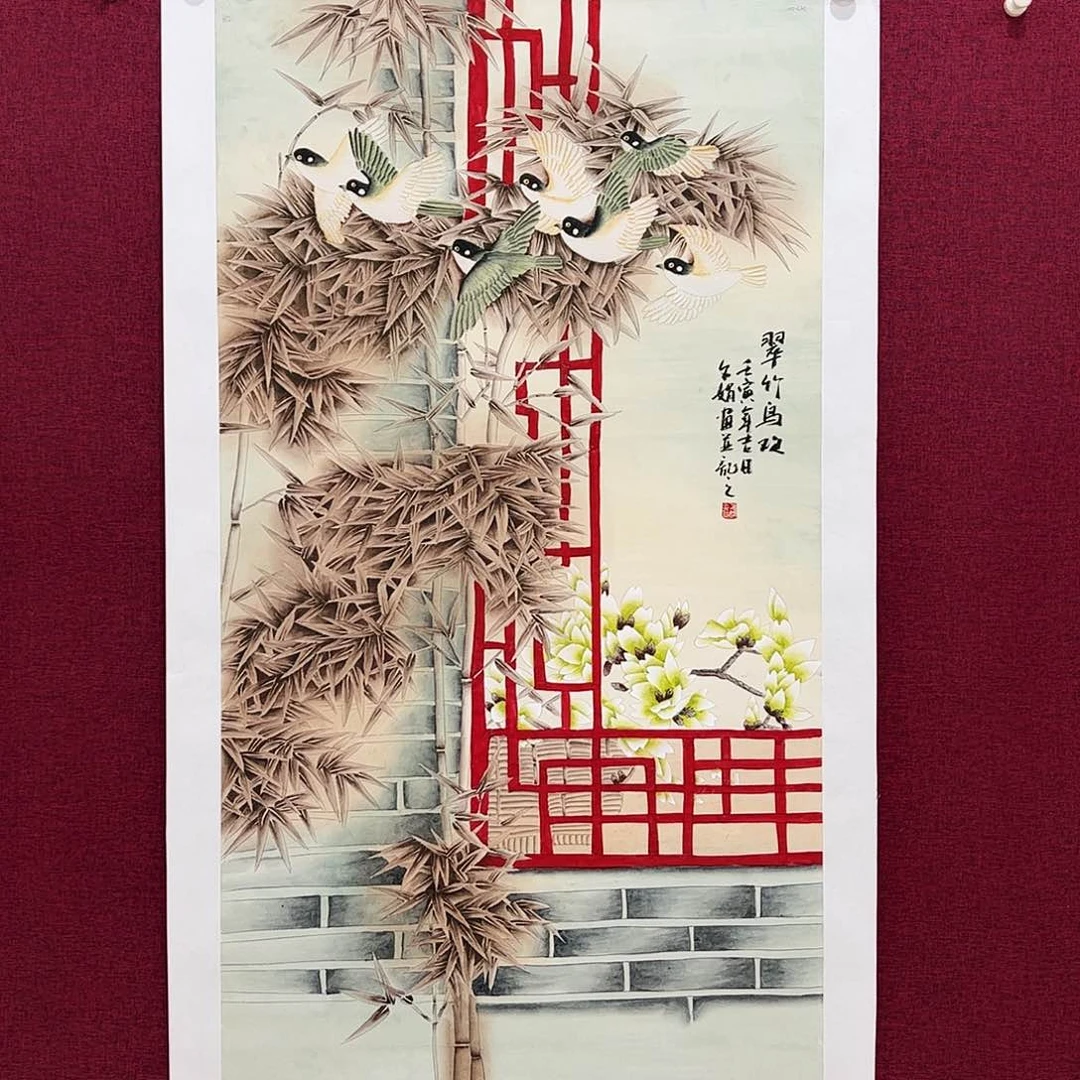 翠竹鸟欢
壬寅年吉日
娟画并記之